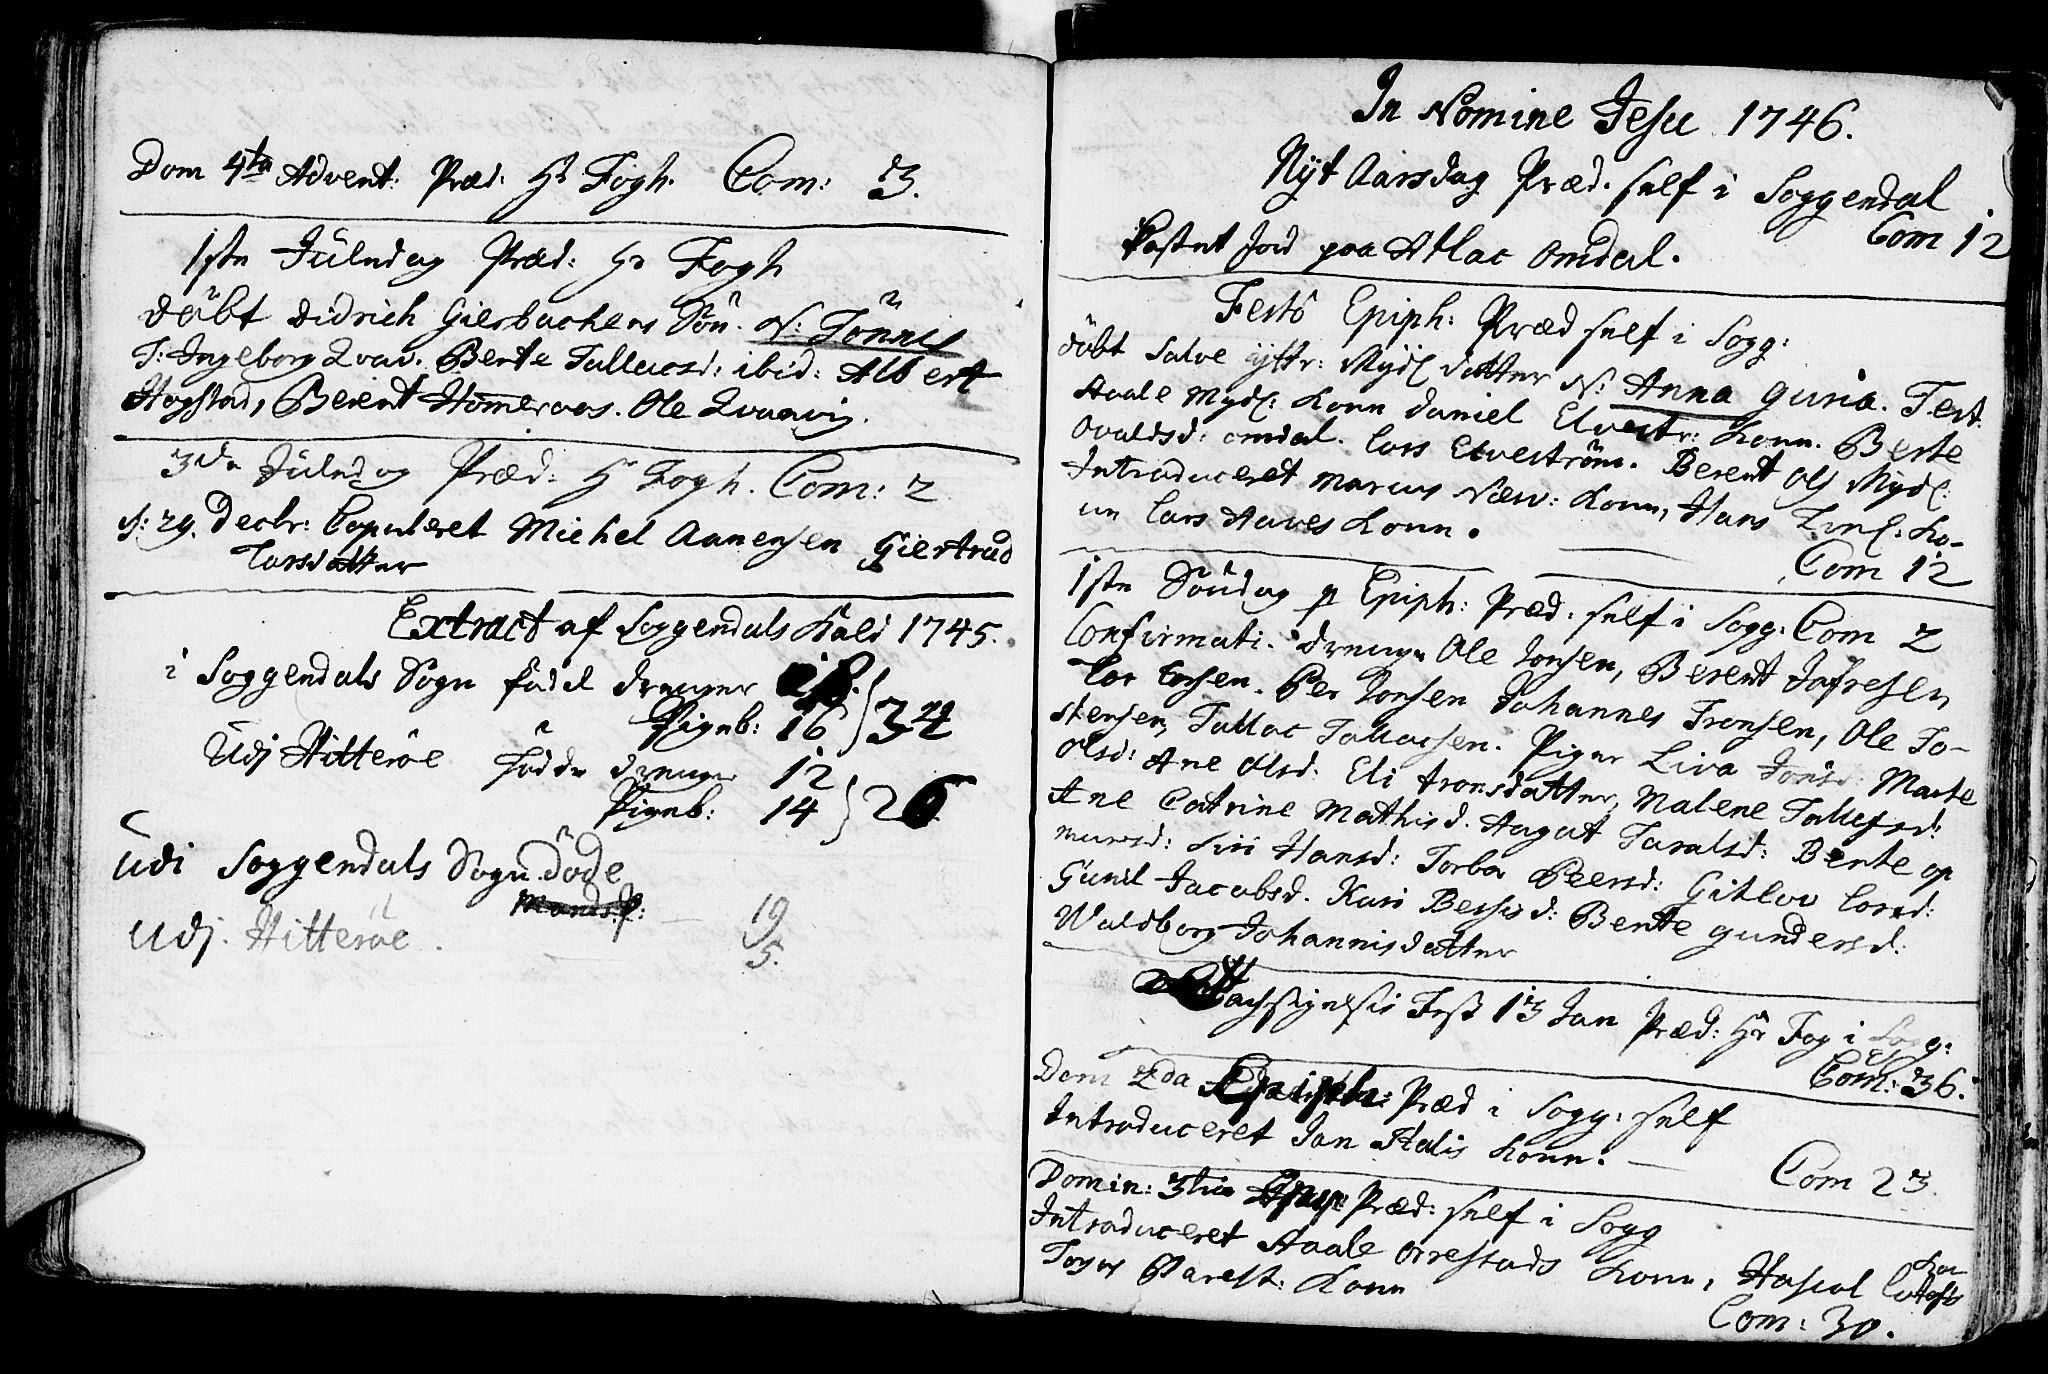 Dom 4ta Advent: Præd: Hr Fogh. Com: 3.
1ste Juledag Præd: Hr Fogh
döbt Didrich Giersbachens Sön. N: Tönnis
T: Ingeborg Qvav. Berte Tallacsd: ibid: Albert
Hogstad, Berent Homeraas. Ole Qvavig.
3de Juledag Præd: Hr Fogh. Com: 2
d: 29. Decbr: Copuleret Michel Aanensen Giertrud
Larsdatter
Extract af Soggendals Kald 1745.
i Soggendals Sogn födde drenger
Pigeb: 16 } 34
Udj Hitteröe födde drenger 12
Pigeb: 14 } 26
Udi Soggendals Sogn döde
19
Udj. Hitteröe. 5.
In Nomine Jesu 1746.
Nyt Aarsdag Præd. self i Soggendal
Com 12
Kastet Jord paa Atlac Omdal.
Festo Epiph: Præd self i Sogg:
döbt Salve yttr: Mydl datter N: Anna Guria. Test
Aaale Mydl: Kone Daniel Elvestr: Kone. Berte
Ovaldsd: omdal. Lars Elveström. Berent Ols Mydl:
Introduceret Marcus Næv: Kone, Hans Ko-
ne Lars Haves Kone.
Com 12
1ste Söndag p Epiph: Præd. self i Sogg: Com 2
Confirmati. drenge Ole Jonsen, Berent Jafresen
Tor Ensen. Per Jonsen Johannes Tronsen, Ole To-
stensen, Tallac Tallacsen. Piger Liva Jonsd. Marte
Olsd: Ane Olsd: Eli Tronsdatter, Malene Tollefsd:
Ane Catrine Mathisd. Aagat Taralsd: Bente op
mansd: Siri Hansd: Torbor Peersd: Gitlov Larsd:
Gunil Jacobsd. Kari Bersisd: Bente Gundersd:
Waldborg Johannisdatter
Tachsigelsis Fest 13 Jan Præd: Hr Fog i Sogg:
Com: 36.
Dom 2da Epiph: Præd i Sogg: self
Introduceret Jan Stalis Kone.
Com 23.
Domin: 3tia Epiph: Præd: self i Sogg
Introduceret Aaale Orrestads Kone, Hascal
Kone
Com: 30.